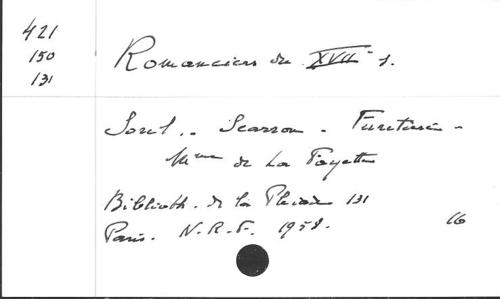 421
150
131
Romanciers du XVIIe s.
Sorel.. Scarron - Furetière -
Mme de La Fayette
Biblioth. de la Pleiade 131
Paris. N.R.F. 1958. 16